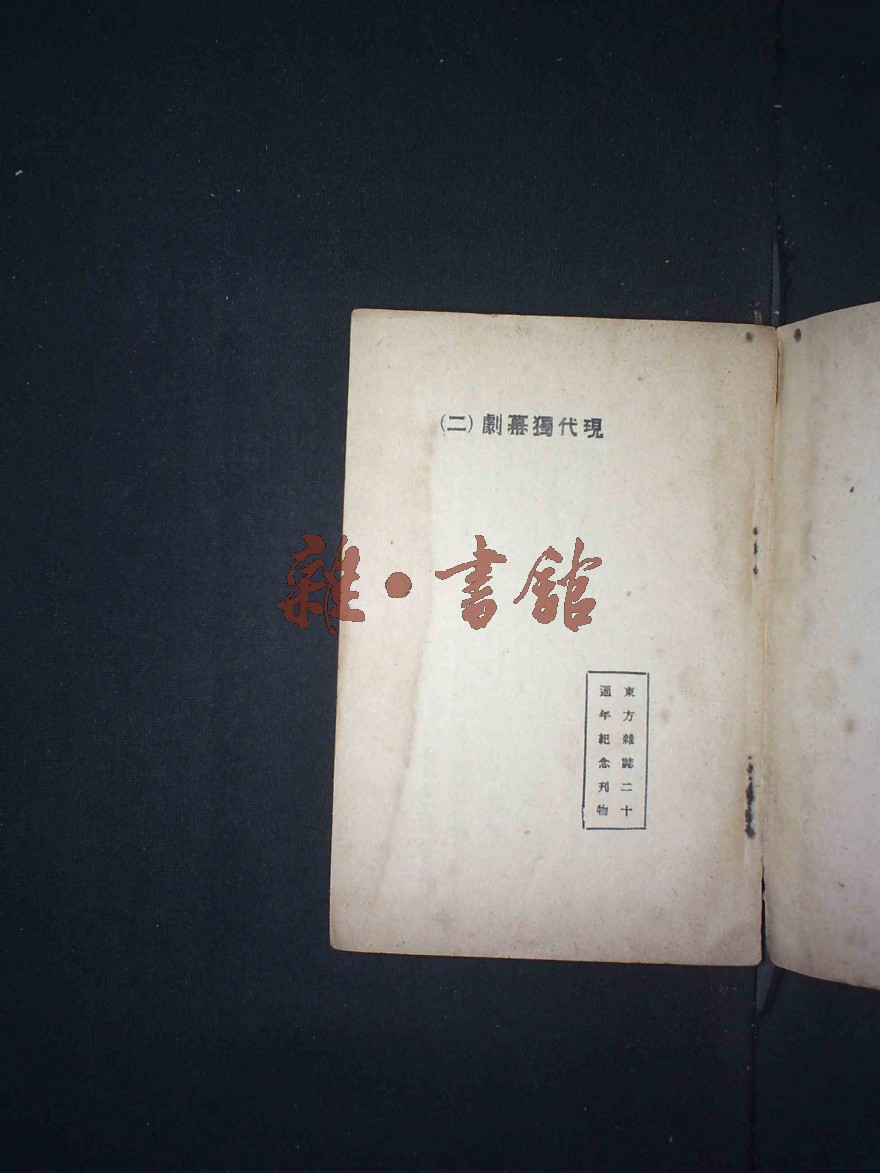 現代獨幕劇（二）
雜·書館
東方雜誌二十
週年紀念刊物